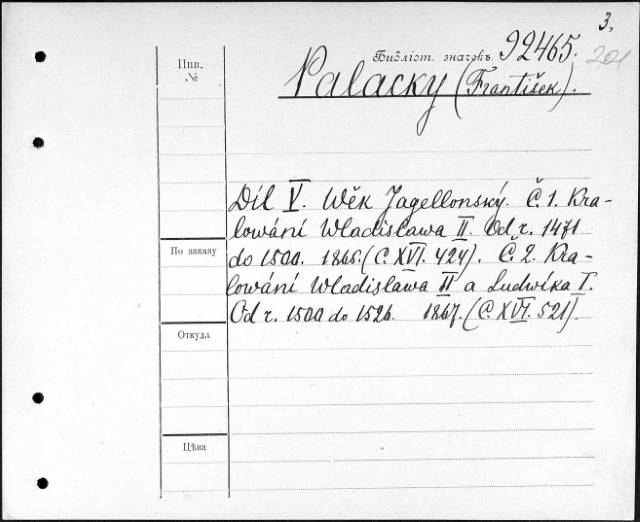 3.
Библіот. значекъ 92465.
201
Инв.
№
Palacky (František).
Díl V. Wěk Jagellonský. Č. 1. Kra-
lowání Wladislawa II. Od r. 1471
до 1500. 1865. (C. XVI. 424). Č. 2. Kra-
По заказу
lowání Wladislawa II a Ludwíka I.
Od r. 1500 do 1526. 1867. (C. XVI. 521).
Откуда
Цѣна